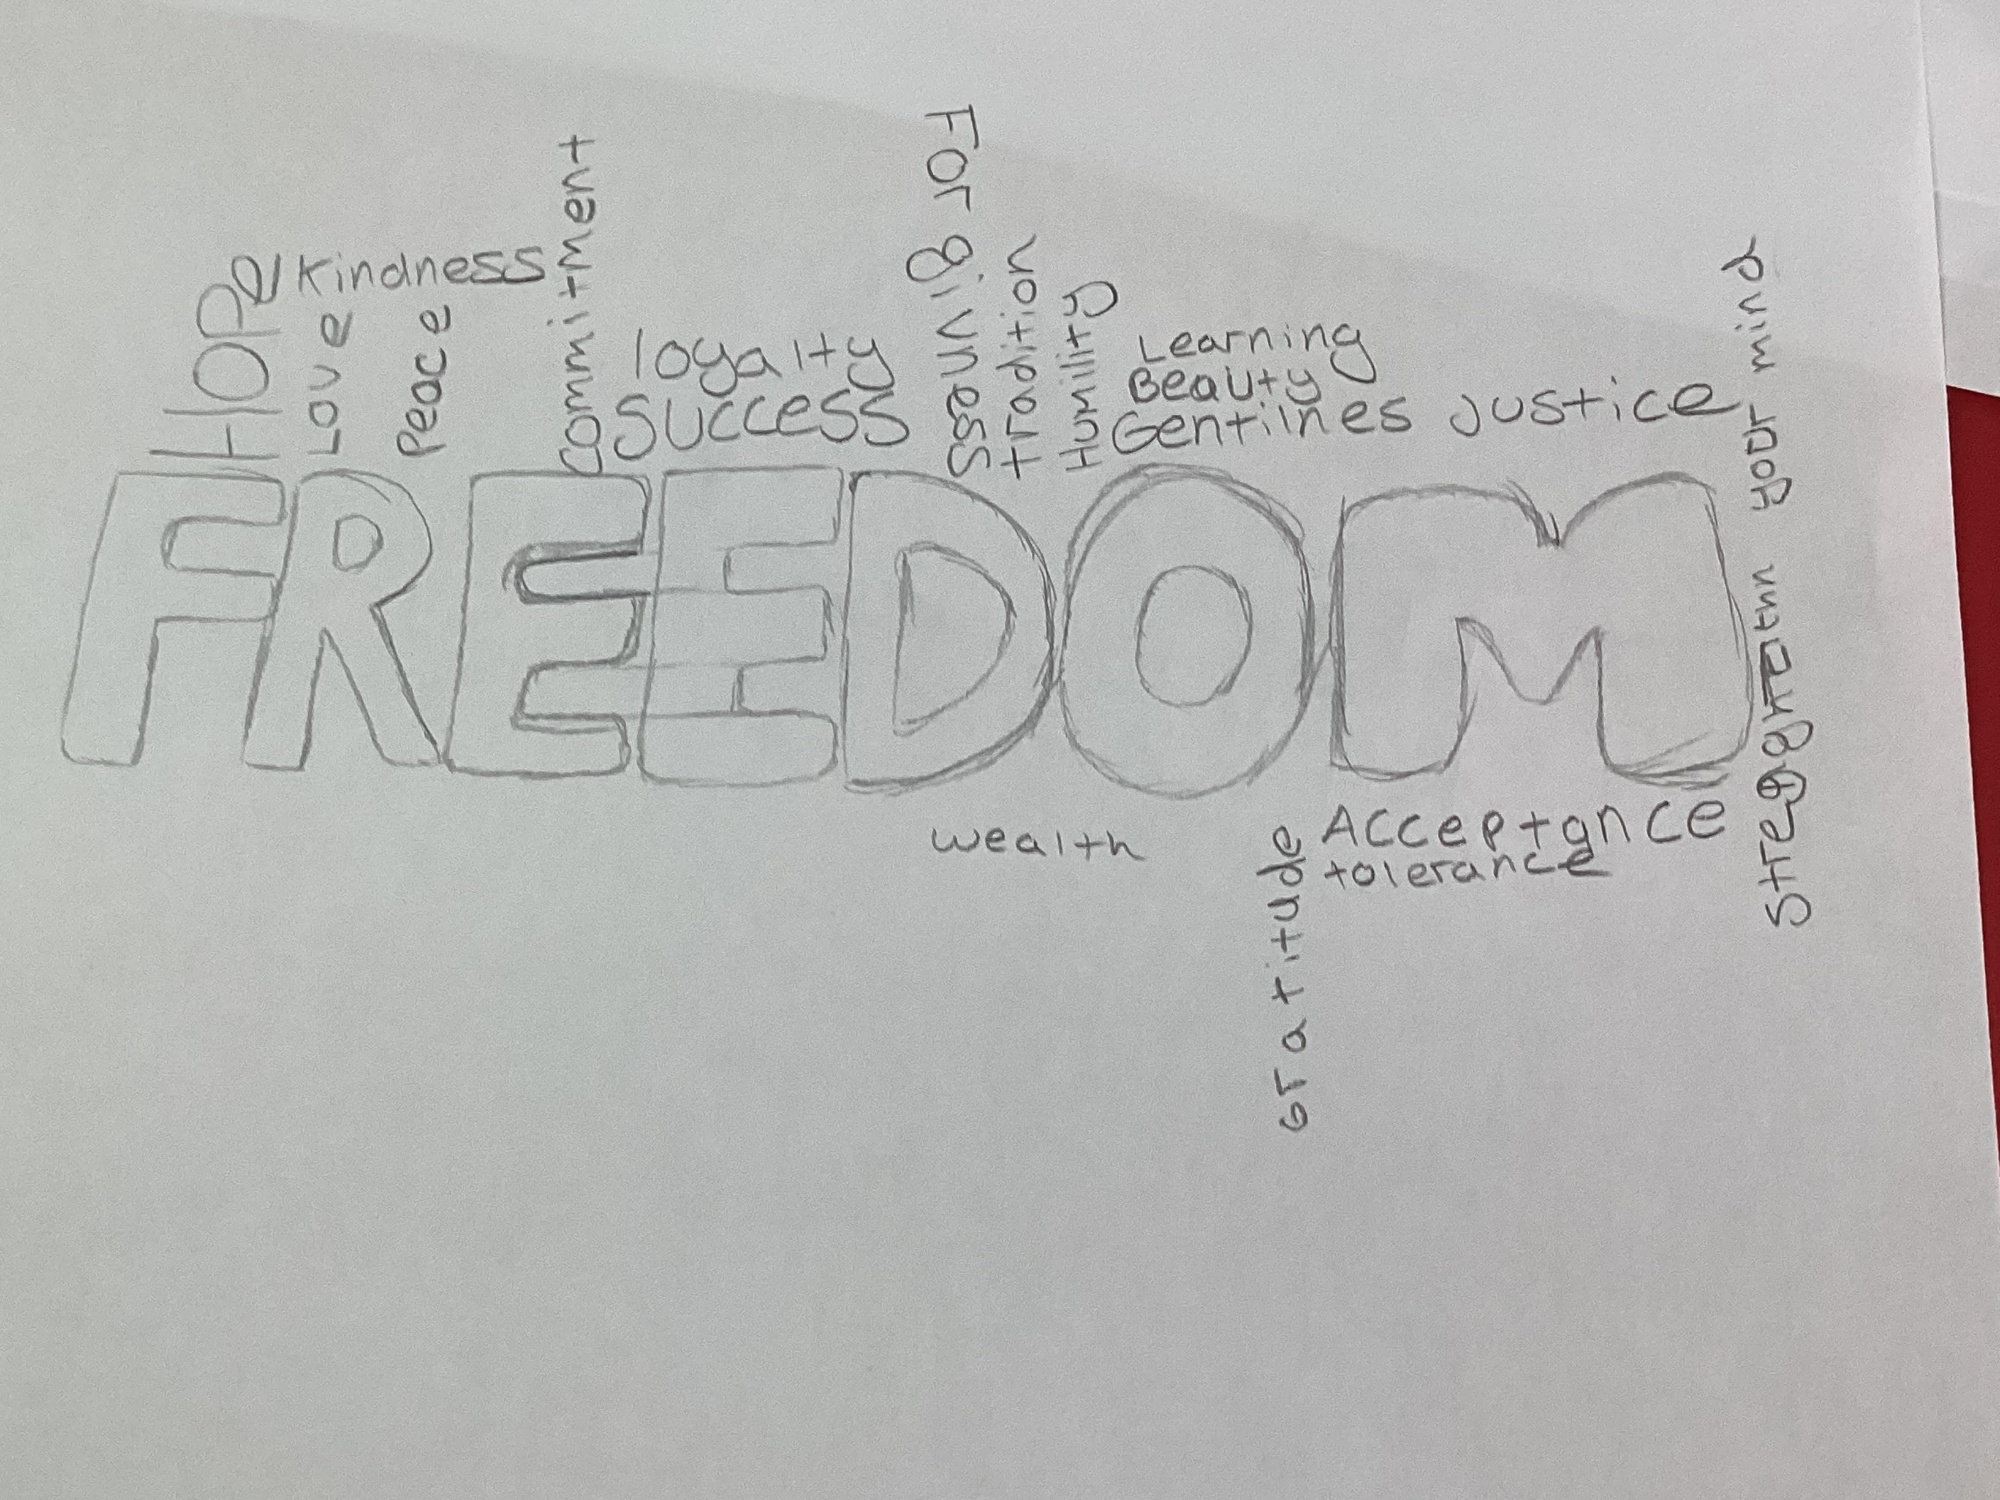 HOPe
Kindness
Love
Peace
Commitment
loyalty
Success
Forgivness
tradition
Humility
Learning
Beauty
Gentilnes
justice
your mind
FREEDOM
wealth
Gratitude
Acceptance
tolerance